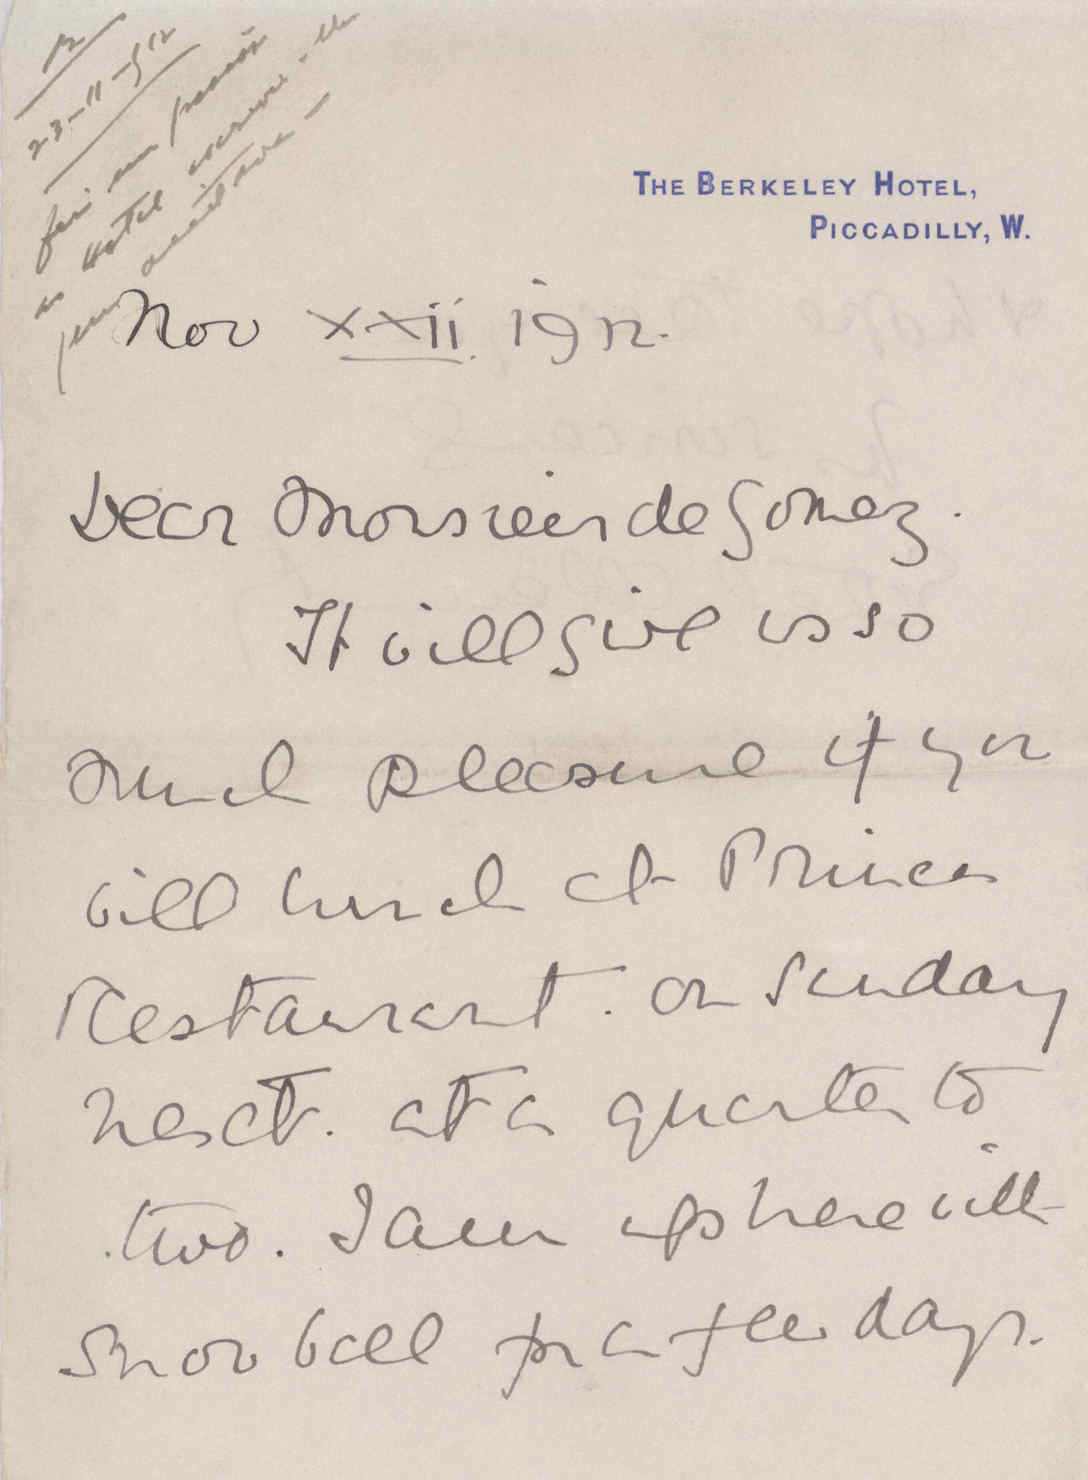 R
23-11-912
THE BERKELEY HOTEL,
PICCADILLY, W.
Nov XXII. 1912.
Dear Monsieur de Gomez.
It will give us so
Much pleasure if you
will lunch at Princes
Restaurant. on Sunday
next. at a quarter to
two. I am up here with
Snow ball for a few days.